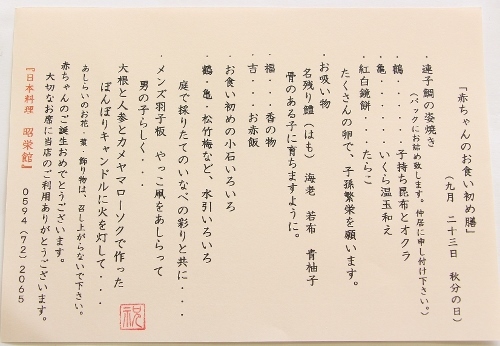 『赤ちゃんのお食い初め膳』
(九月 二十三日 秋分の日)
・連子鯛の姿焼き
(パックにお詰め致します。仲居に申し付け下さい。)
・鶴・・・・・子持ち昆布とオクラ
・亀・・・・・いくら温玉和え
・紅白鏡餅・・・・たらこ
たくさんの卵で、子孫繁栄を願います。
・お吸い物
名残り鱧(はも) 海老 若布 青柚子
骨のある子に育ちますように。
・福・・・香の物
・吉・・・お赤飯
・お食い初めの小石いろいろ
・鶴・亀・松竹梅など、水引いろいろ
庭で採りたてのいなべの彩りと共に・・・・
・メンズ羽子板 やっこ凧をあしらって
男の子らしく・・・
大根と人参とカメヤマローソクで作った
ぼんぼりキャンドルに火を灯して・・・
あしらいのお花、葉、飾り物は、召し上がらないで下さい。
赤ちゃんのご誕生おめでとうございます。
大切なお席に当店のご利用ありがとうございます。
『日本料理 昭栄館』 0594(72)2065
祝